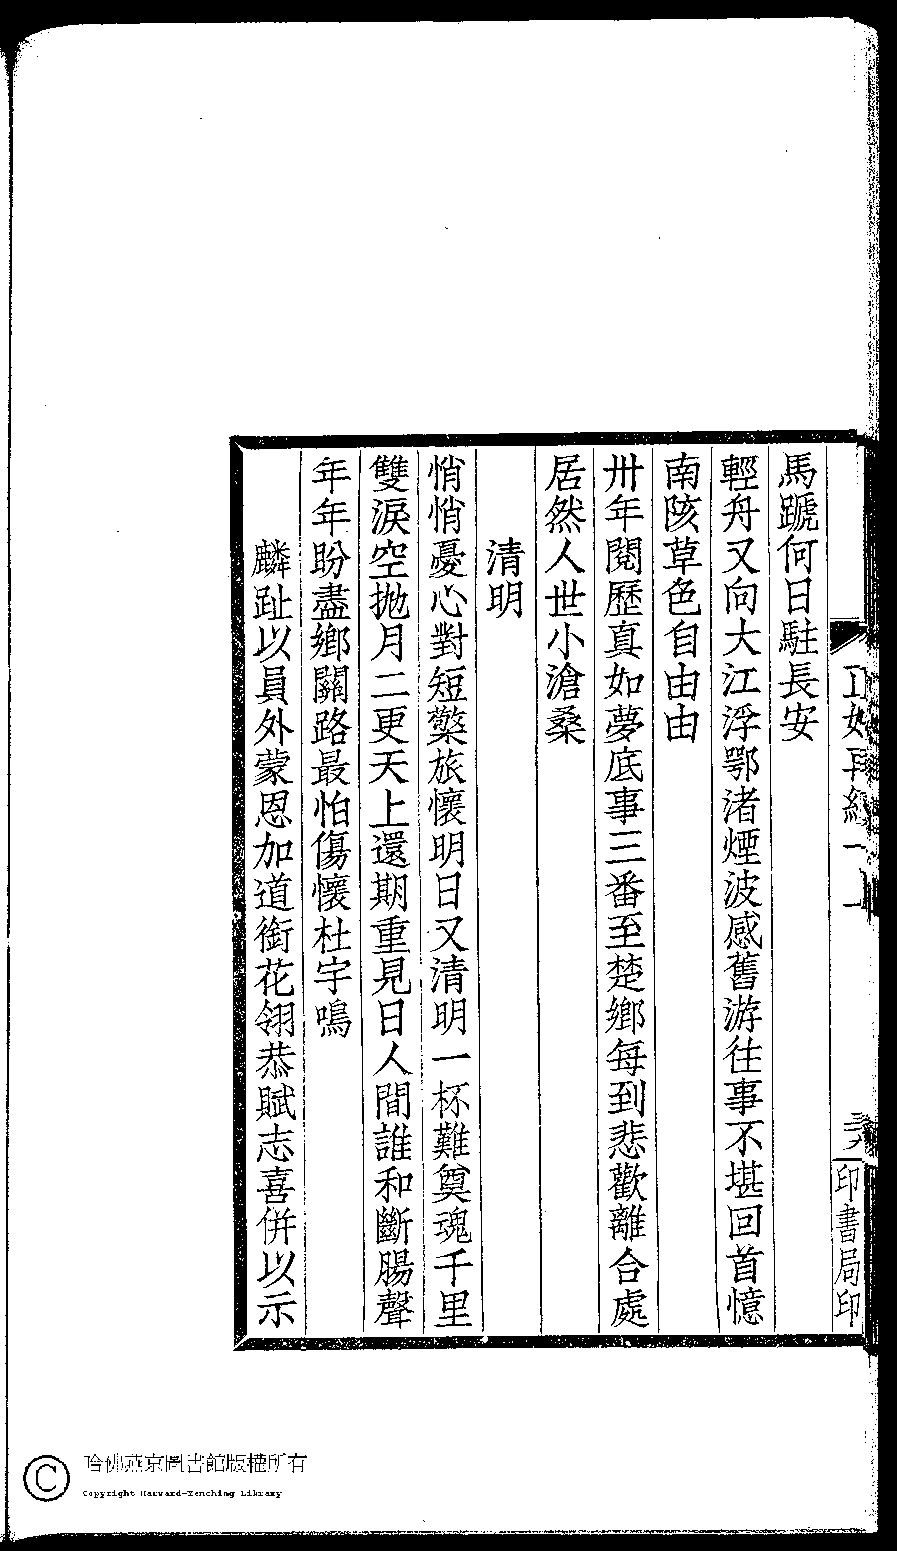 馬蹏何日駐長安
輕舟又向大江浮鄂渚煙波感舊游往事不堪回首憶
南陔草色自由由
卅年閱歷真如夢底事三番至楚鄉每到悲歡離合處
居然人世小滄桑
清明
悄悄憂心對短檠旅懷明日又清明一杯難奠魂千里
雙淚空抛月二更天上還期重見日人間誰和斷腸聲
年年盼盡鄉關路最怕傷懷杜宇鳴
麟趾以員外蒙恩加道銜花翎恭賦志喜併以示
印書局印
哈佛燕京圖書館版權所有
Copyright Harvard-Yenching Library